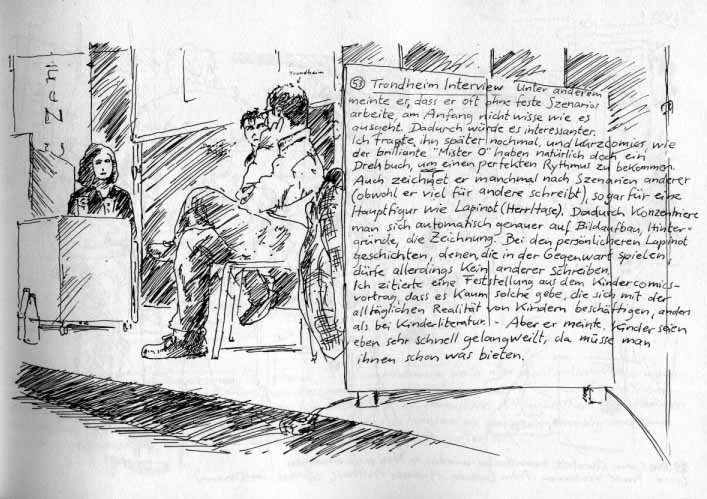 Trondheim
(53) Trondheim Interview Unter anderem
meinte er, dass er oft ohne feste Szenarios
arbeite, am Anfang nicht wisse wie es
ausgeht. Dadurch würde es interessanter.
Ich fragte ihn später nochmal, und Kurzcomics, wie
der brilliante "Mister O" haben natürlich doch ein
Drehbuch, um einen perfekten Rythmus zu bekommen.
Auch zeichnet er manchmal nach Szenarien anderer
(obwohl er viel für andere schreibt), sogar für eine
Hauptfigur wie Lapinot (Herr Hase). Dadurch Konzentriere
man sich automatisch genauer auf Bildaufbau, Hinter-
gründe, die Zeichnung. Bei den persönlicheren Lapinot
geschichten, denen, die in der Gegenwart spielen,
dürfe allerdings Kein anderer Schreiben.
Ich zitierte eine Feststellung aus dem Kindercomics-
vortrag, dass es Kaum solche gebe, die sich mit der
alltäglichen Realität von Kindern beschäftigen, anders
als bei Kinderliteratur. - Aber er meinte, Kinder seien
eben sehr schnell gelangweilt, da müsse man
ihnen schon was bieten.